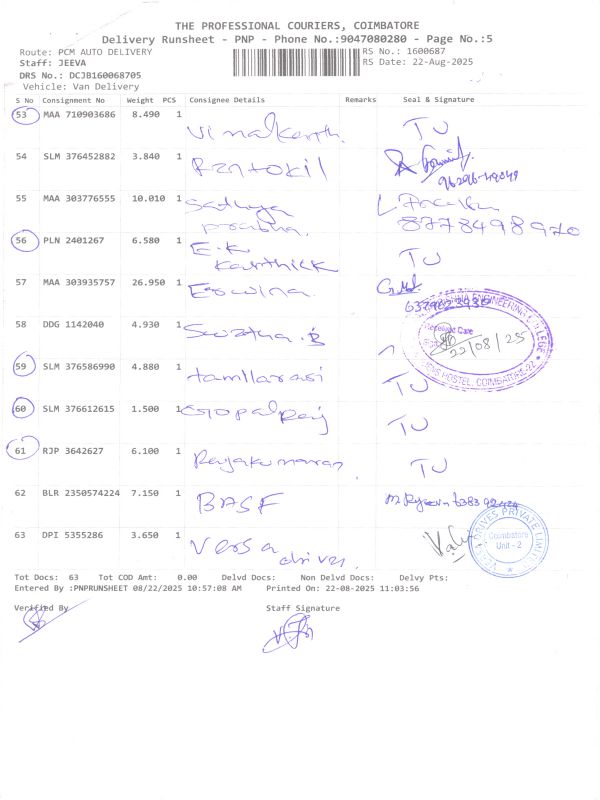 THE PROFESSIONAL COURIERS, COIMBATORE
Delivery Runsheet - PNP - Phone No.:9047080280 - Page No.:5
Route: PCM AUTO DELIVERY RS No.: 1600687
Staff: JEEVA RS Date: 22-Aug-2025
DRS No.: DCJB160068705
Vehicle: Van Delivery
S No Consignment No Weight PCS Consignee Details Remarks Seal & Signature
53 MAA 710903686 8.490 1 Vimalkanth. TU
54 SLM 376452882 3.840 1 Rentokil
55 MAA 303776555 10.010 1 Sathya
prabha. 8778498970
56 PLN 2401267 6.580 1 E.K TU
Karthick
57 MAA 303935757 26.950 1 Edwina
58 DDG 1142040 4.930 1 Sujatha.B 22/08/25
59 SLM 376586990 4.880 1 tamilarasi TU
60 SLM 376612615 1.500 1 Gopal Raj TU
61 RJP 3642627 6.100 1 Rajakumaran TU
62 BLR 2350574224 7.150 1 BASF
63 DPI 5355286 3.650 1 Versa
drives
DRIVES PRIVATE LIMITED
Coimbatore
Unit - 2
Tot Docs: 63 Tot COD Amt: 0.00 Delvd Docs: Non Delvd Docs: Delvy Pts:
Entered By :PNPRUNSHEET 08/22/2025 10:57:08 AM Printed On: 22-08-2025 11:03:56
Verified By Staff Signature